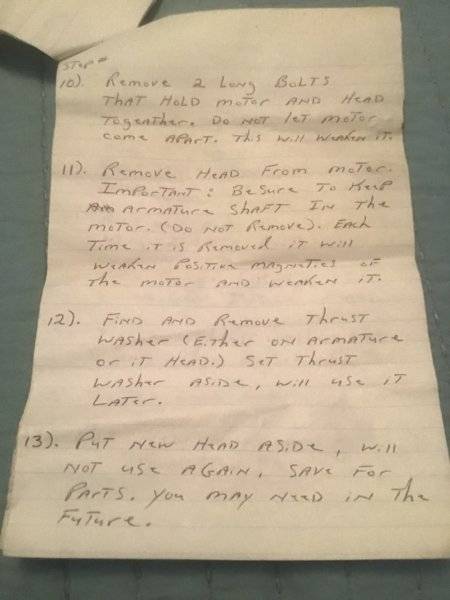 STEP #
10). Remove 2 Long Bolts
That Hold motor and Head
Togeather. Do Not let motor
come Apart. This will weaken it.
11). Remove Head From motor.
Important: Be Sure To Keep
Armature Shaft In The
motor. (Do Not Remove). Each
Time it is Removed it will
weaken Positive magnetics of
The motor and weaken it.
12). Find and Remove Thrust
washer (Either on Armature
or it Head.) Set Thrust
washer Aside, will use it
Later.
13). Put New Head Aside, will
Not use Again. Save For
Parts. You may Need in The
Future.